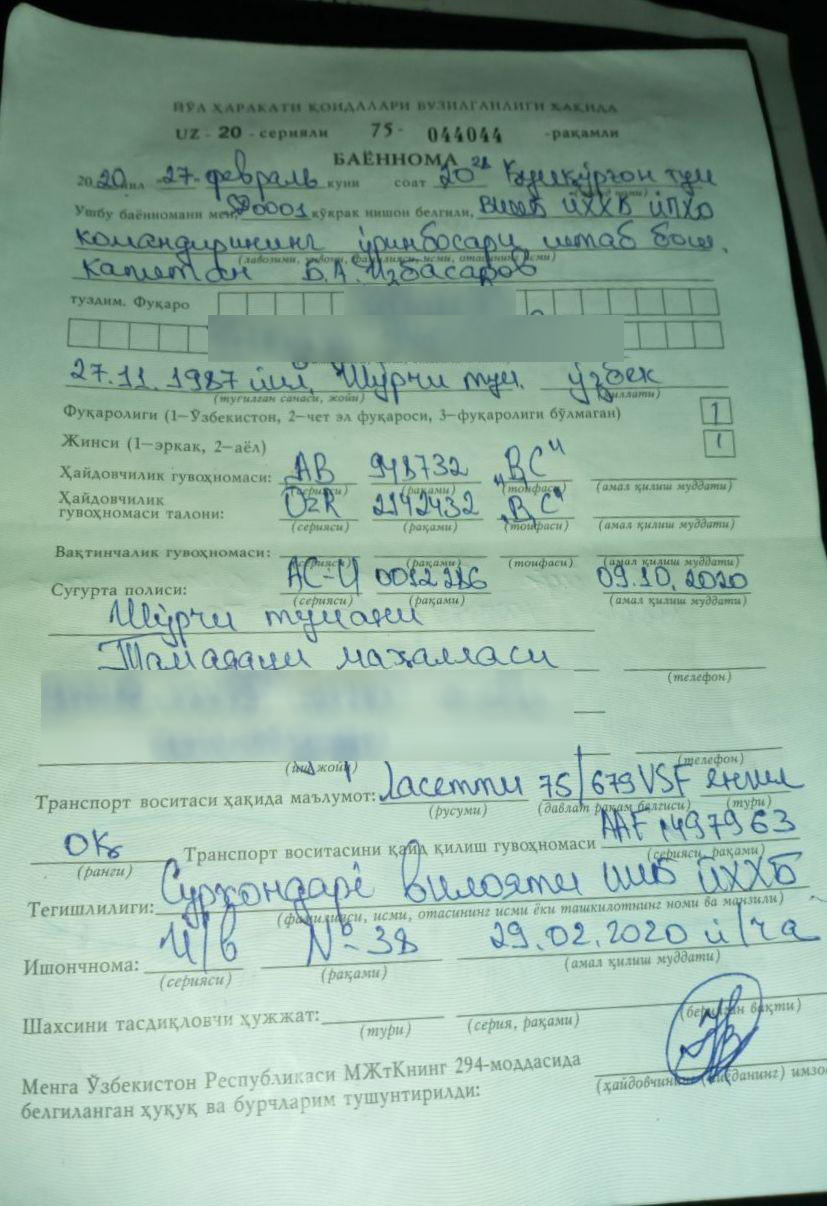 ЙЎЛ ҲАРАКАТИ ҚОИДАЛАРИ БУЗИЛГАНЛИГИ ҲАҚИДА
UZ - 20 - серияли 75- 044044 -рақамли
БАЁННОМА
2020 йил 27- февраль куни соат 20 21 Қумқўрғон тум
Ушбу баённомани мен, 20001 кўкрак нишон белгили, ВИИБ ЙҲХБ ЙПХО
командирининг ўринбосари штаб бош.
(лавозими, унвони, фамилияси, исми, отасининг исми)
капетан Б.А. Избасаров
туздим. Фуқаро
27.11.1987 йил, Шўрчи тум. ўзбек
(туғилган санаси, жойи) (миллати)
Фуқаролиги (1—Ўзбекистон, 2—чет эл фуқароси, 3—фуқаролиги бўлмаган) 1
Жинси (1—эркак, 2—аёл) 1
Ҳайдовчилик гувоҳномаси: АВ 948732 „ВС"
(серияси) (рақами) (тоифаси) (амал қилиш муддати)
Ҳайдовчилик
гувоҳномаси талони: UzR 2142432 „ВС"
(серияси) (рақами) (тоифаси) (амал қилиш муддати)
Вақтинчалик гувоҳномаси:
(серияси) (рақами) (тоифаси) (амал қилиш муддати)
Суғурта полиси: АС-И 0012286 09.10.2020
(серияси) (рақами) (амал қилиш муддати)
Шўрчи тумани
маҳалласи
(телефон)
(иш жойи) (телефон)
Транспорт воситаси ҳақида маълумот: Ласетти 75/679VSF енгил
(русуми) (давлат рақам белгиси) (тури)
оқ Транспорт воситасини қайд қилиш гувоҳномаси AAF 1497963
(ранги) (серияси, рақами)
Тегишлилиги: Сурхондарё вилояти ИИБ ЙҲХБ
(фамилияси, исми, отасининг исми ёки ташкилотнинг номи ва манзили)
Ишончнома: И/в № 38 29.02.2020 й/га
(серияси) (рақами) (амал қилиш муддати)
Шахсини тасдиқловчи ҳужжат:
(тури) (серия, рақами) (берилган вақти)
Менга Ўзбекистон Республикаси МЖтКнинг 294-моддасида
белгиланган ҳуқуқ ва бурчларим тушунтирилди:
(ҳайдовчининг имзо